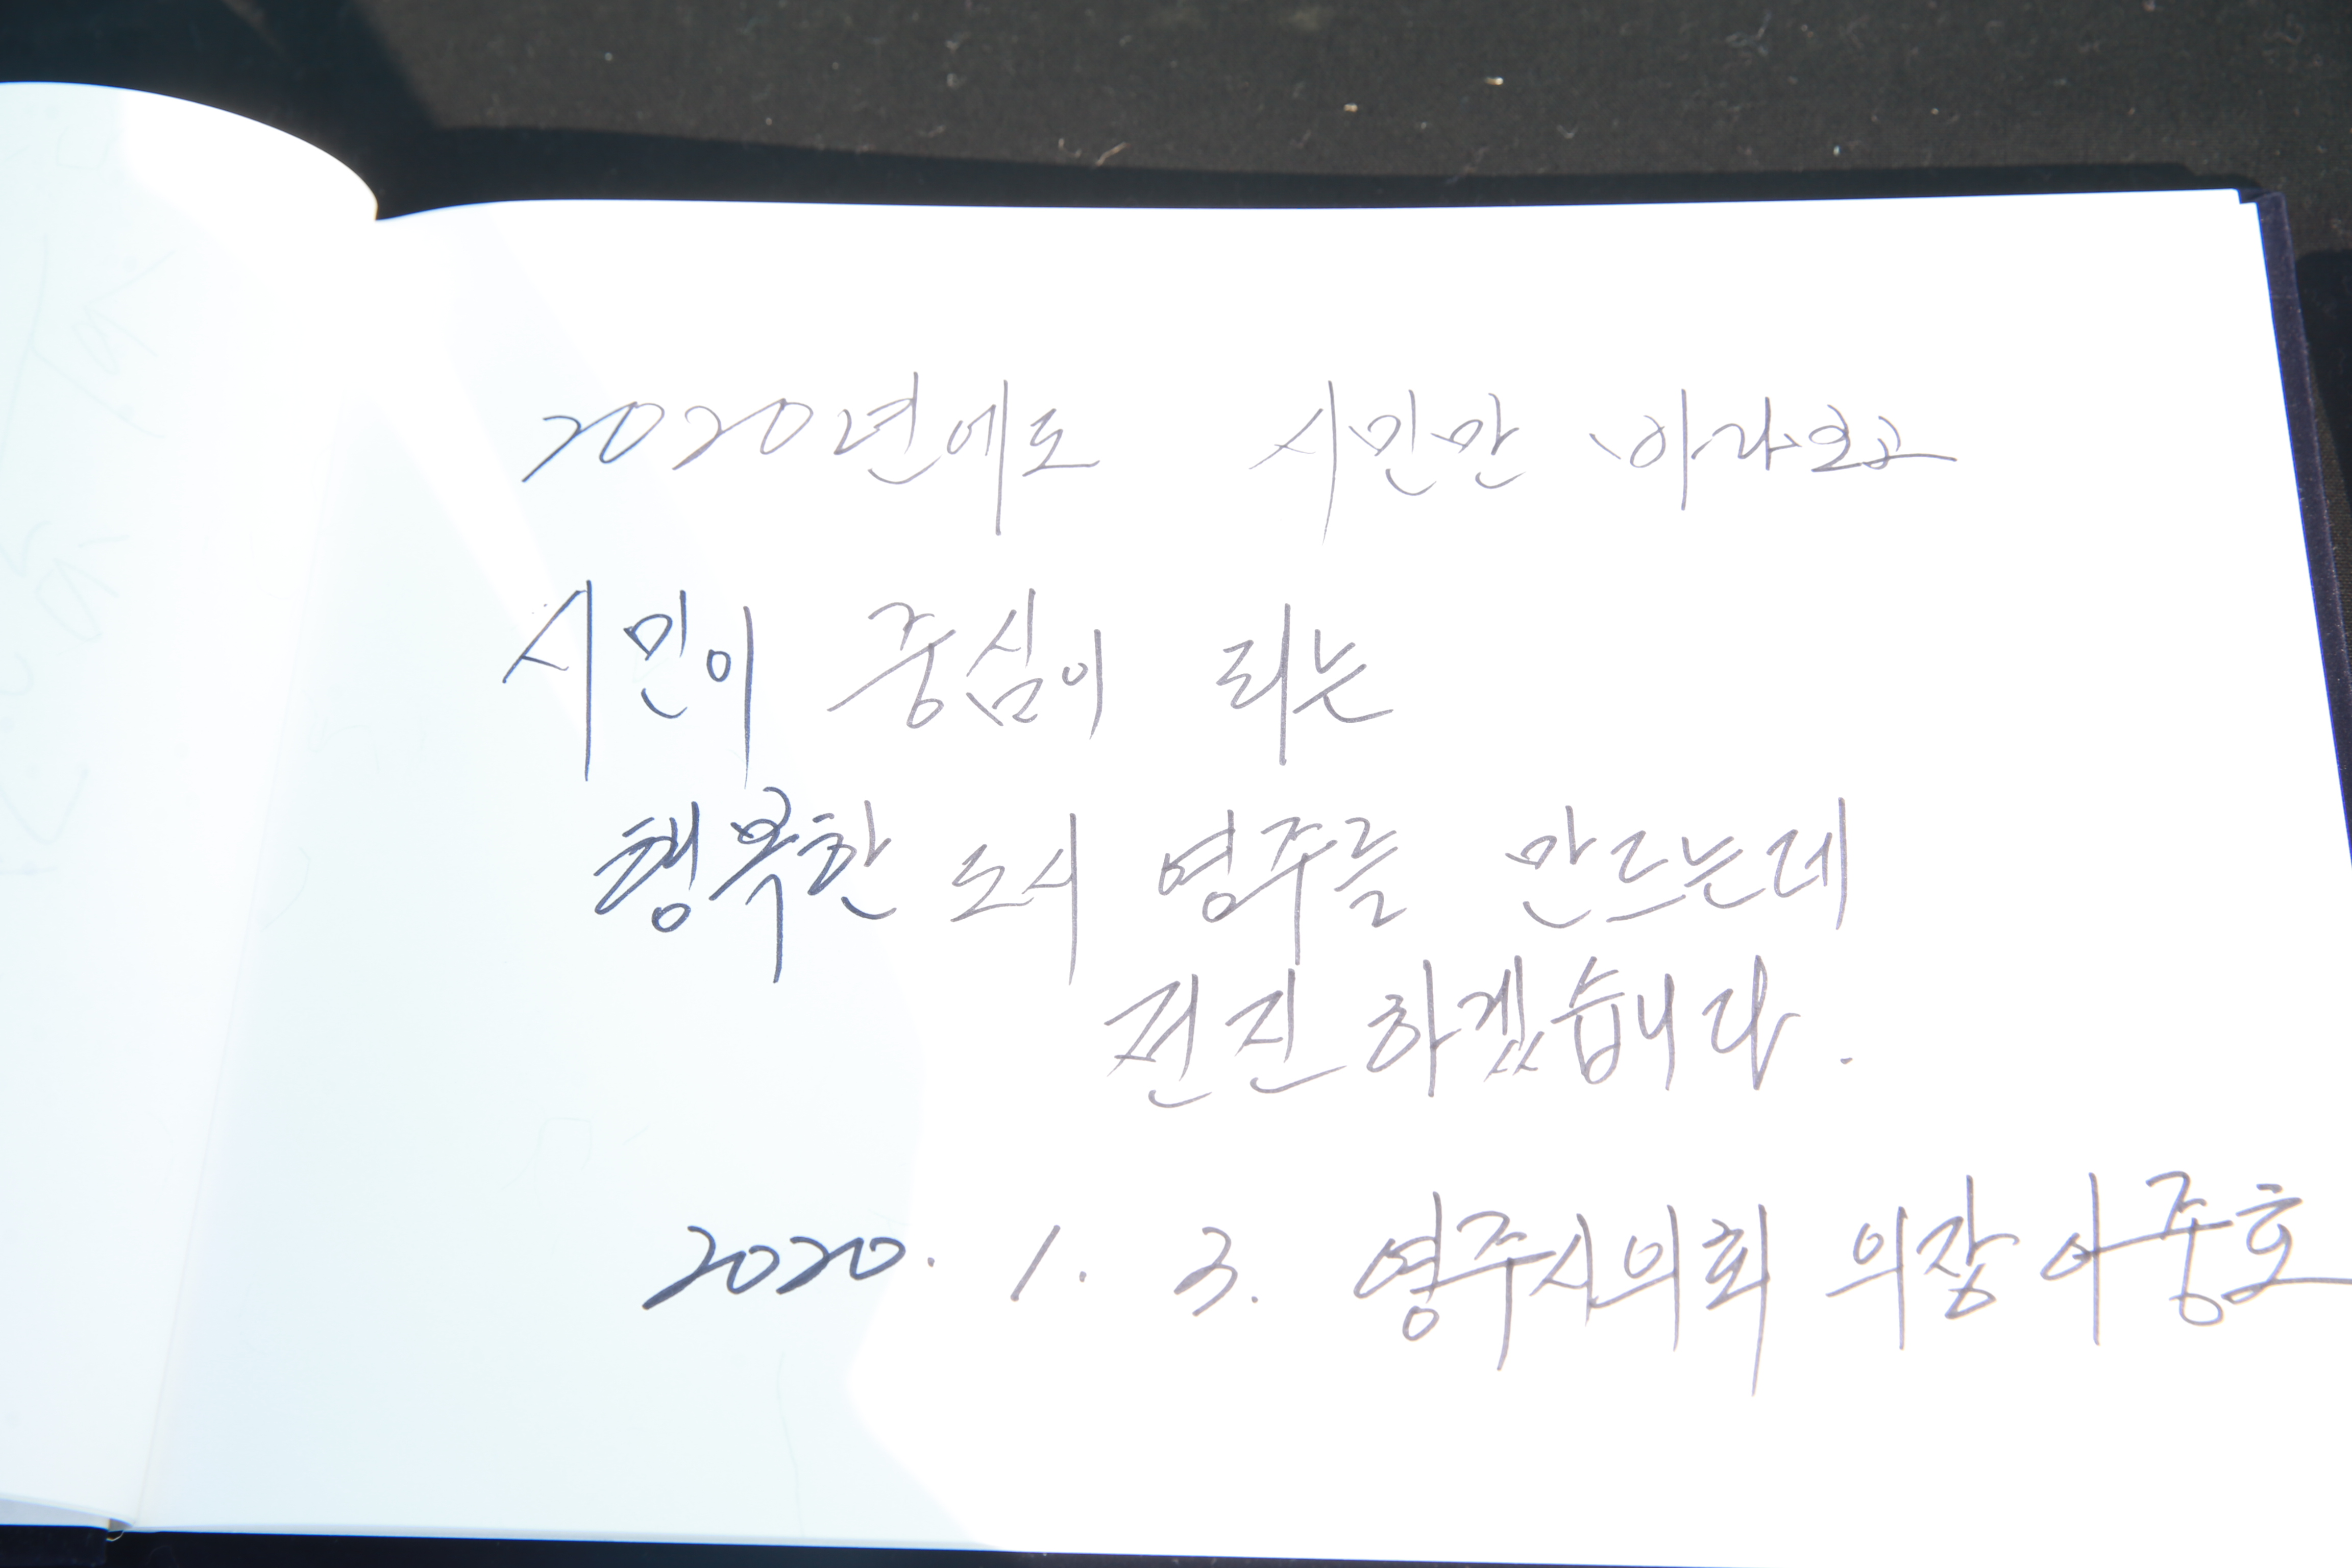 2020년에도 시민만 바라보고
시민이 중심이 되는
행복한 도시 영주를 만드는데
전진 하겠습니다.
2020. 1. 3. 영주시의회 의장 이중호